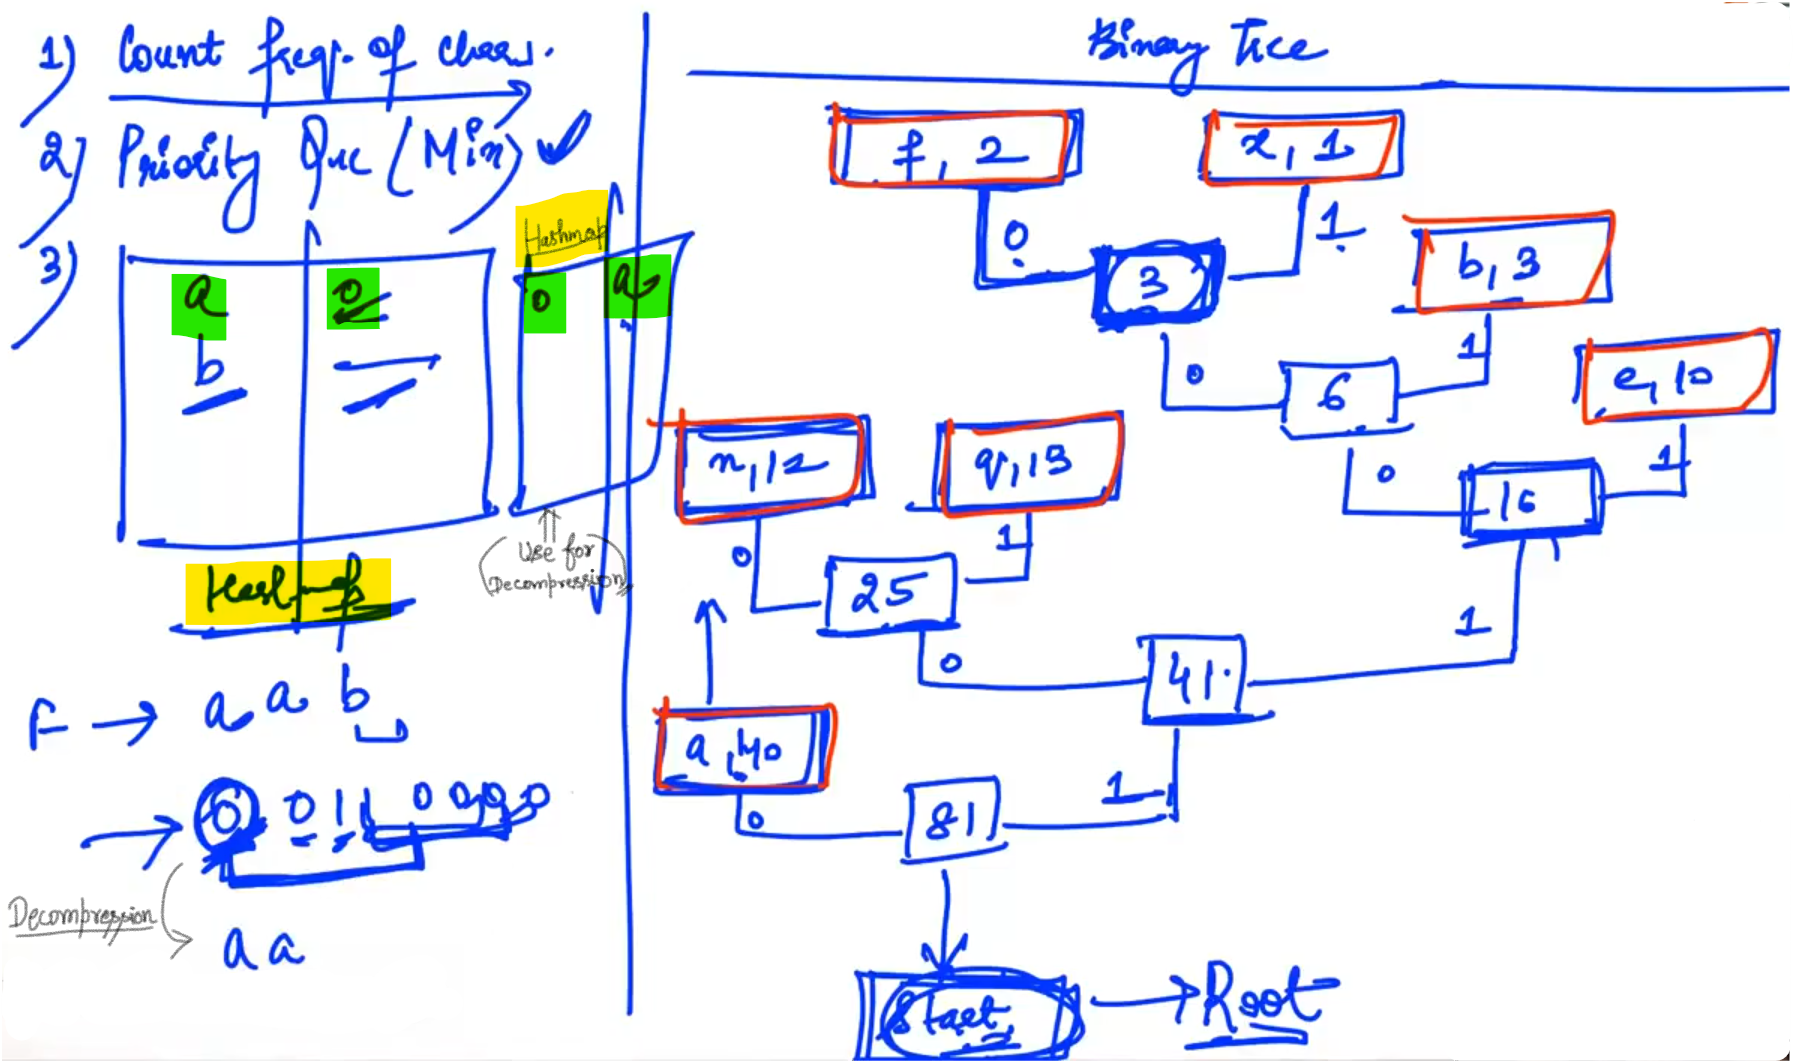 1) Count freq. of chars.
2) Priority Que (Min)
3)
Hashmap
a 0
b
0 a
Hashmap
(Use for Decompression)
F → a a b
0 0 1 1 0 0 0 0
Decompression
a a
Binary Tree
f, 2
x, 1
0
1
3
b, 3
0
1
6
e, 10
0
1
16
n, 12
q, 13
0
1
25
0
1
41
a, 40
0
1
81
Start
Root